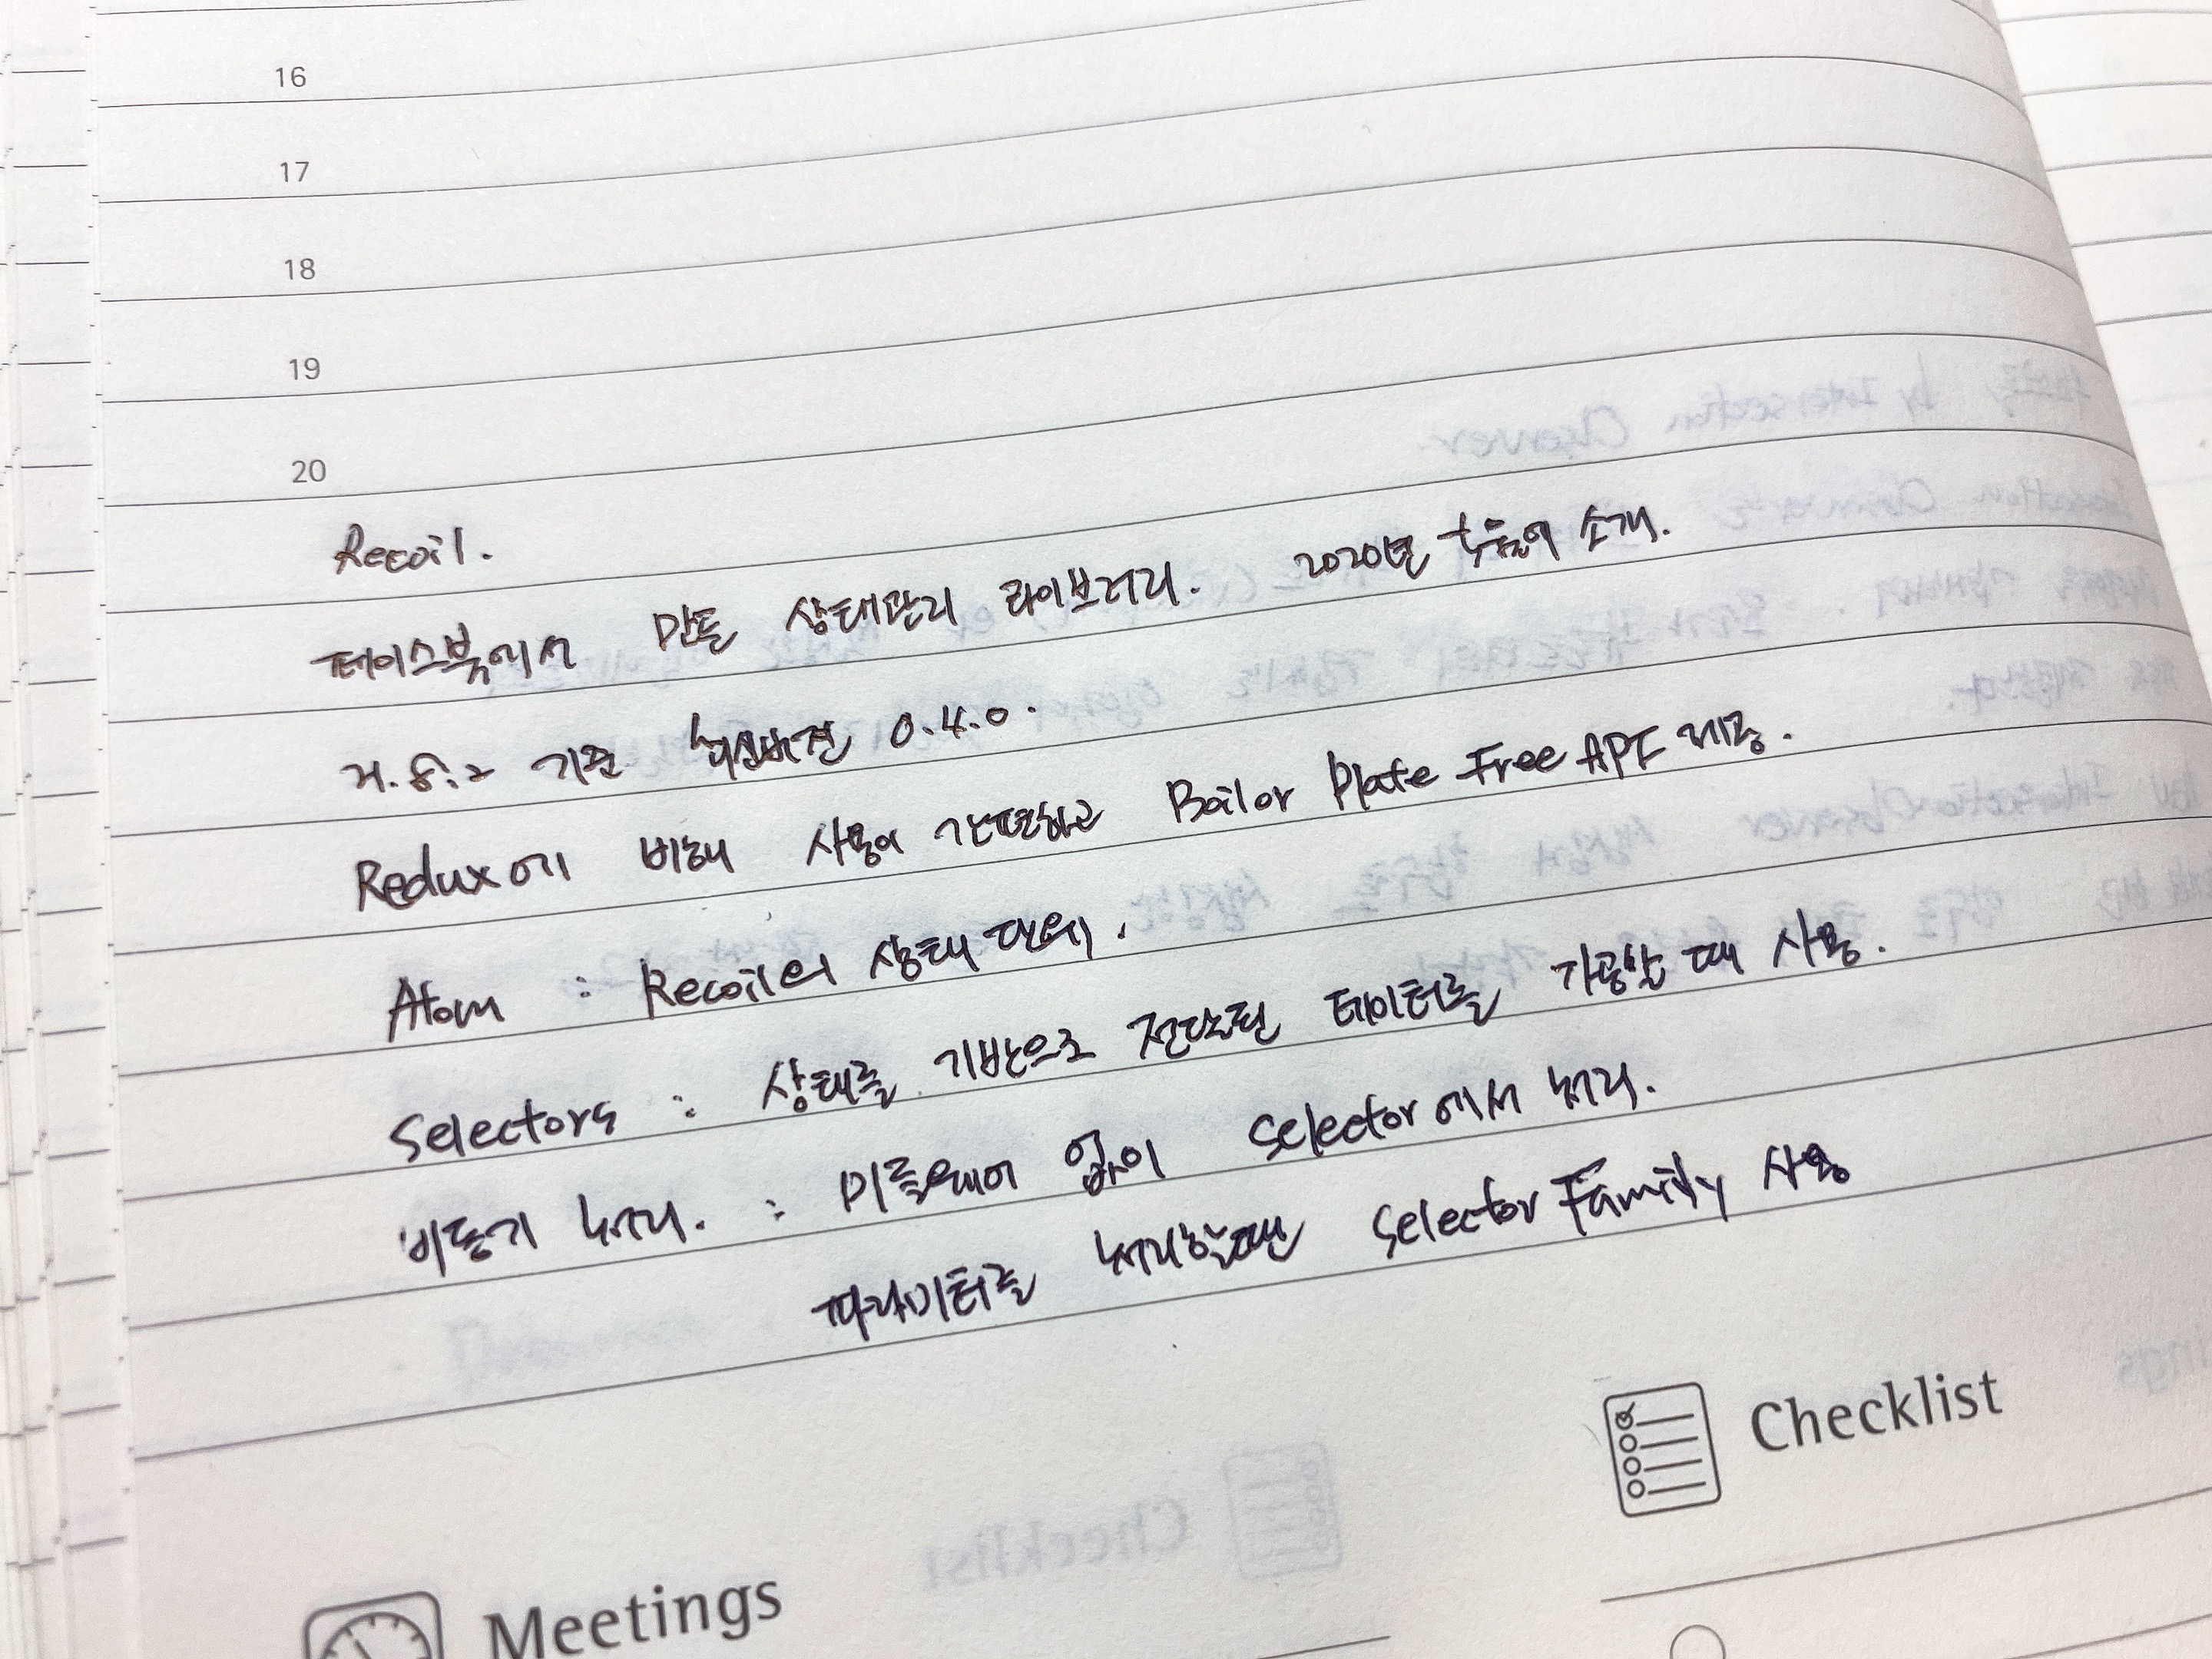 16
17
18
19
20
Recoil.
페이스북에서 만든 상태관리 라이브러리. 2020년 처음에 소개.
기준 최신버전 0.4.0.
Redux에 비해 사용이 간편하고 Boilor Plate Free API 제공.
Atom : Recoil의 상태 단위.
Selectors : 상태를 기반으로 전달된 데이터를 가공할 때 사용.
비동기 처리. : 미들웨어 없이 Selector에서 처리.
파라미터를 처리할땐 Selector Family 사용
Checklist
Meetings